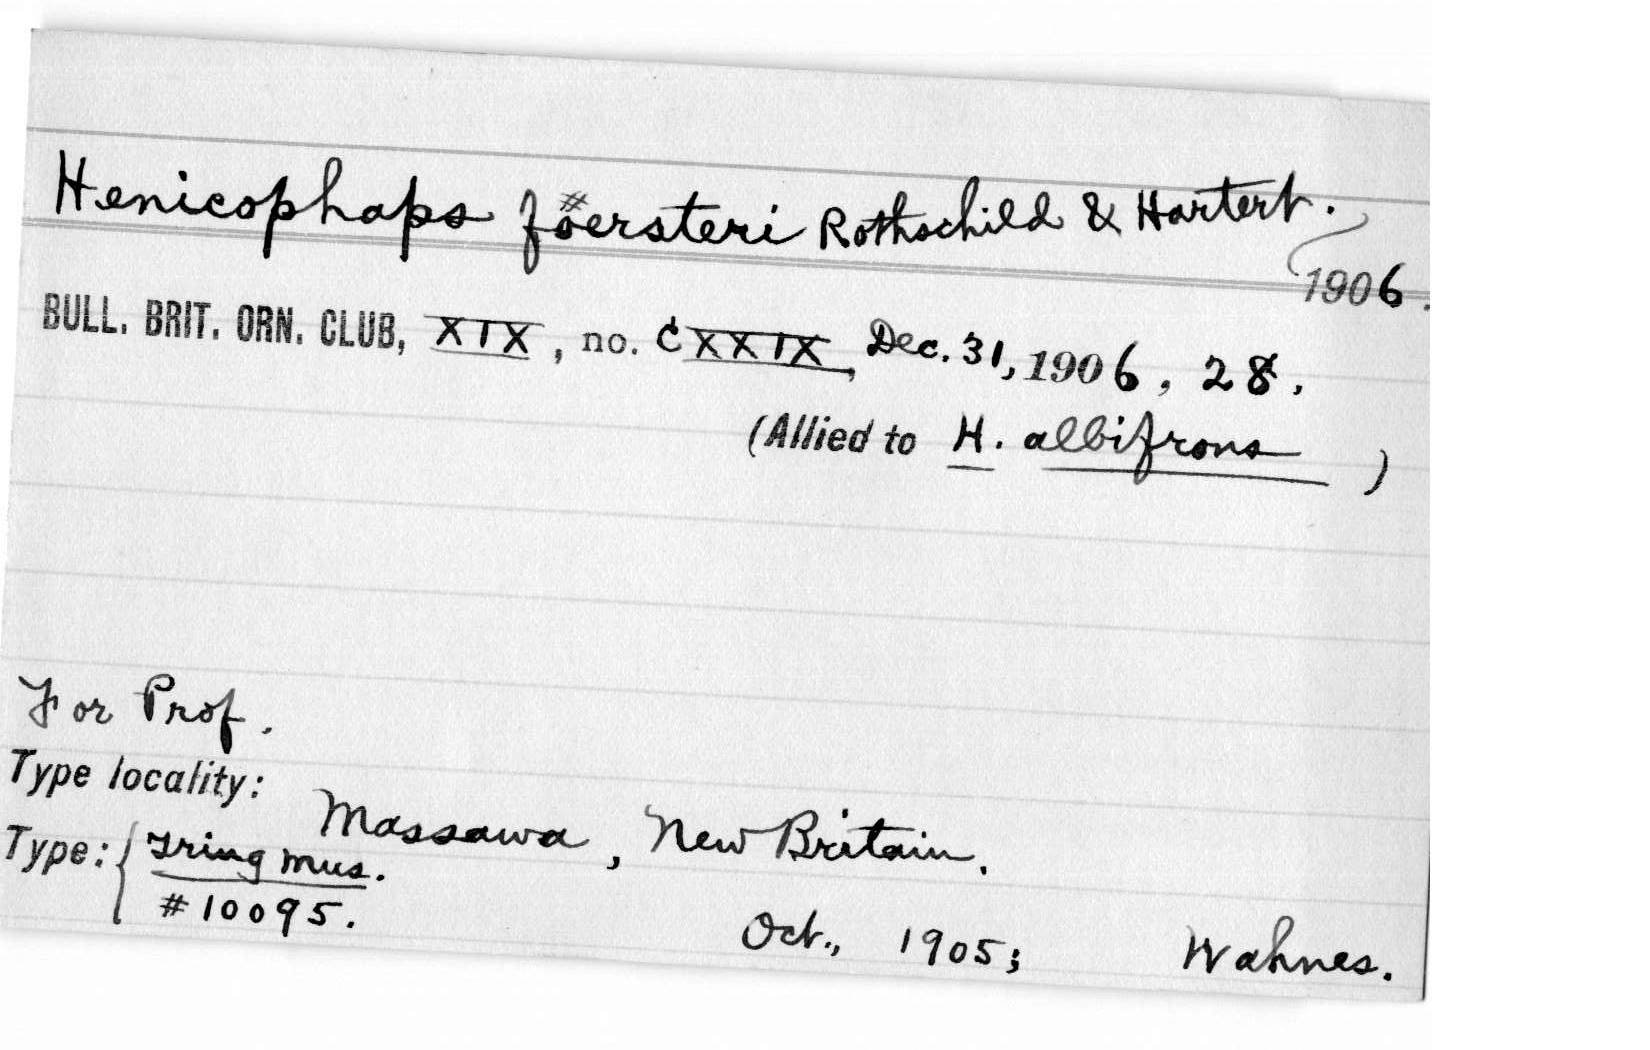 Henicophaps föersteri Rothschild & Hartert.
1906.
BULL. BRIT. ORN. CLUB, XIX, no. CXXIX, Dec. 31, 1906, 28.
(Allied to H. albifrons )
For Prof.
Type locality: Massawa, New Britain.
Type: { Tring Mus.
#10095.
Oct., 1905; Wahnes.